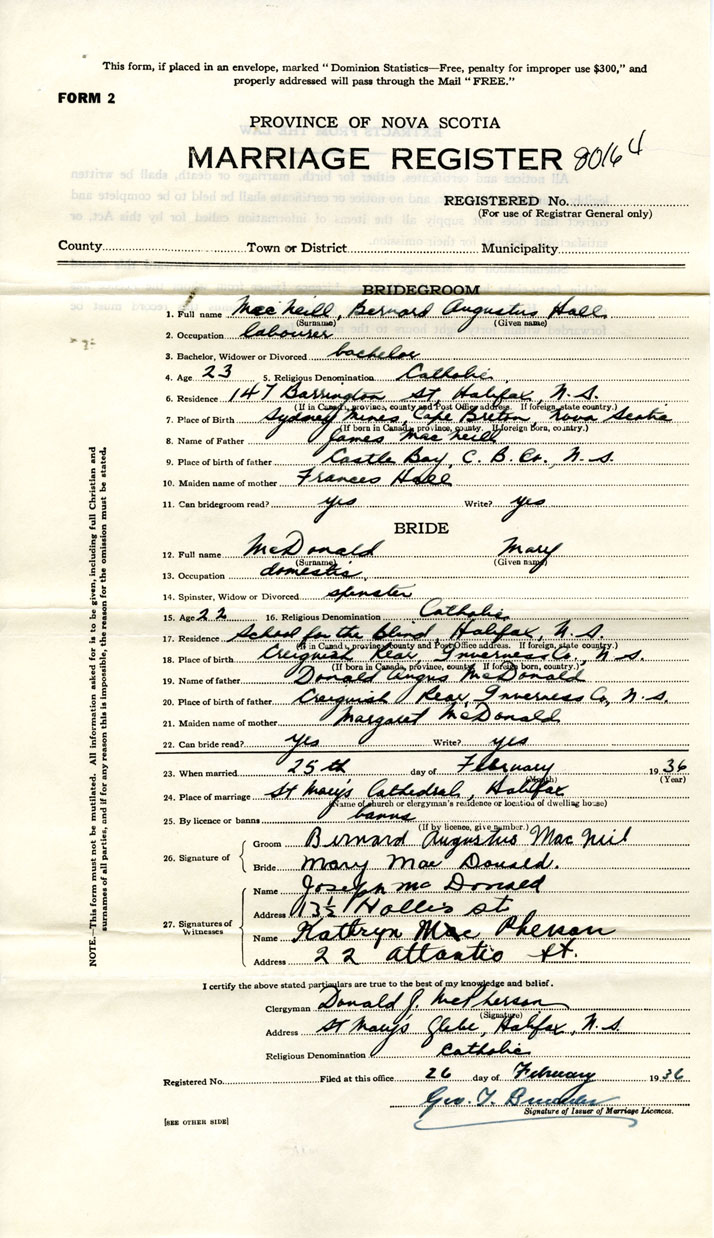 This form, if placed in an envelope, marked "Dominion Statistics—Free, penalty for improper use $300," and
properly addressed will pass through the Mail "FREE."
FORM 2
PROVINCE OF NOVA SCOTIA
MARRIAGE REGISTER 80164
REGISTERED No.
(For use of Registrar General only)
County Town or District Municipality
BRIDEGROOM
1. Full name MacNeill, Bernard Augustus Hall
(Surname) (Given name)
2. Occupation labourer
3. Bachelor, Widower or Divorced bachelor
4. Age 23 5. Religious Denomination Catholic
6. Residence 147 Barrington St, Halifax, N.S.
(If in Canada, province, county and Post Office address. If foreign, state country.)
7. Place of Birth Sydney Mines, Cape Breton, Nova Scotia
(If born in Canada, province, county. If foreign Born, country.)
8. Name of Father James MacNeill
9. Place of birth of father Castle Bay, C.B. Co., N.S.
10. Maiden name of mother Frances Hall
11. Can bridegroom read? yes Write? yes
BRIDE
12. Full name McDonald Mary
(Surname) (Given name)
13. Occupation domestic
14. Spinster, Widow or Divorced spinster
15. Age 22 16. Religious Denomination Catholic
17. Residence School for the Blind Halifax, N.S.
(If in Canada, province county and Post Office address. If foreign, state country.)
18. Place of birth Creignish Rear, Inverness Co, N.S.
(If born in Canada, province, county. If foreign born, country.)
19. Name of father Donald Angus McDonald
20. Place of birth of father Craignish Rear, Inverness Co, N.S.
21. Maiden name of mother Margaret McDonald
22. Can bride read? yes Write? yes
23. When married 25th day of February 1936
(Month) (Year)
24. Place of marriage St Mary's Cathedral, Halifax
(Name of church or clergyman's residence or location of dwelling house)
25. By licence or banns banns
(If by licence, give number.)
26. Signature of
Groom Bernard Augustus MacNeil
Bride Mary MacDonald.
27. Signatures of Witnesses
Name Joseph McDonald
Address 13½ Hollis St
Name Kathryn MacPherson
Address 22 Atlantic St.
I certify the above stated particulars are true to the best of my knowledge and belief.
Clergyman Donald J. McPherson
(Signature)
Address St Mary's Glebe, Halifax, N.S.
Religious Denomination Catholic
Registered No. Filed at this office 26 day of February 1936
Geo. T.
Signature of Issuer of Marriage Licences.
[SEE OTHER SIDE]
NOTE.—This form must not be mutilated. All information asked for is to be given, including full Christian and
surnames of all parties, and if for any reason this is impossible, the reason for the omission must be stated.